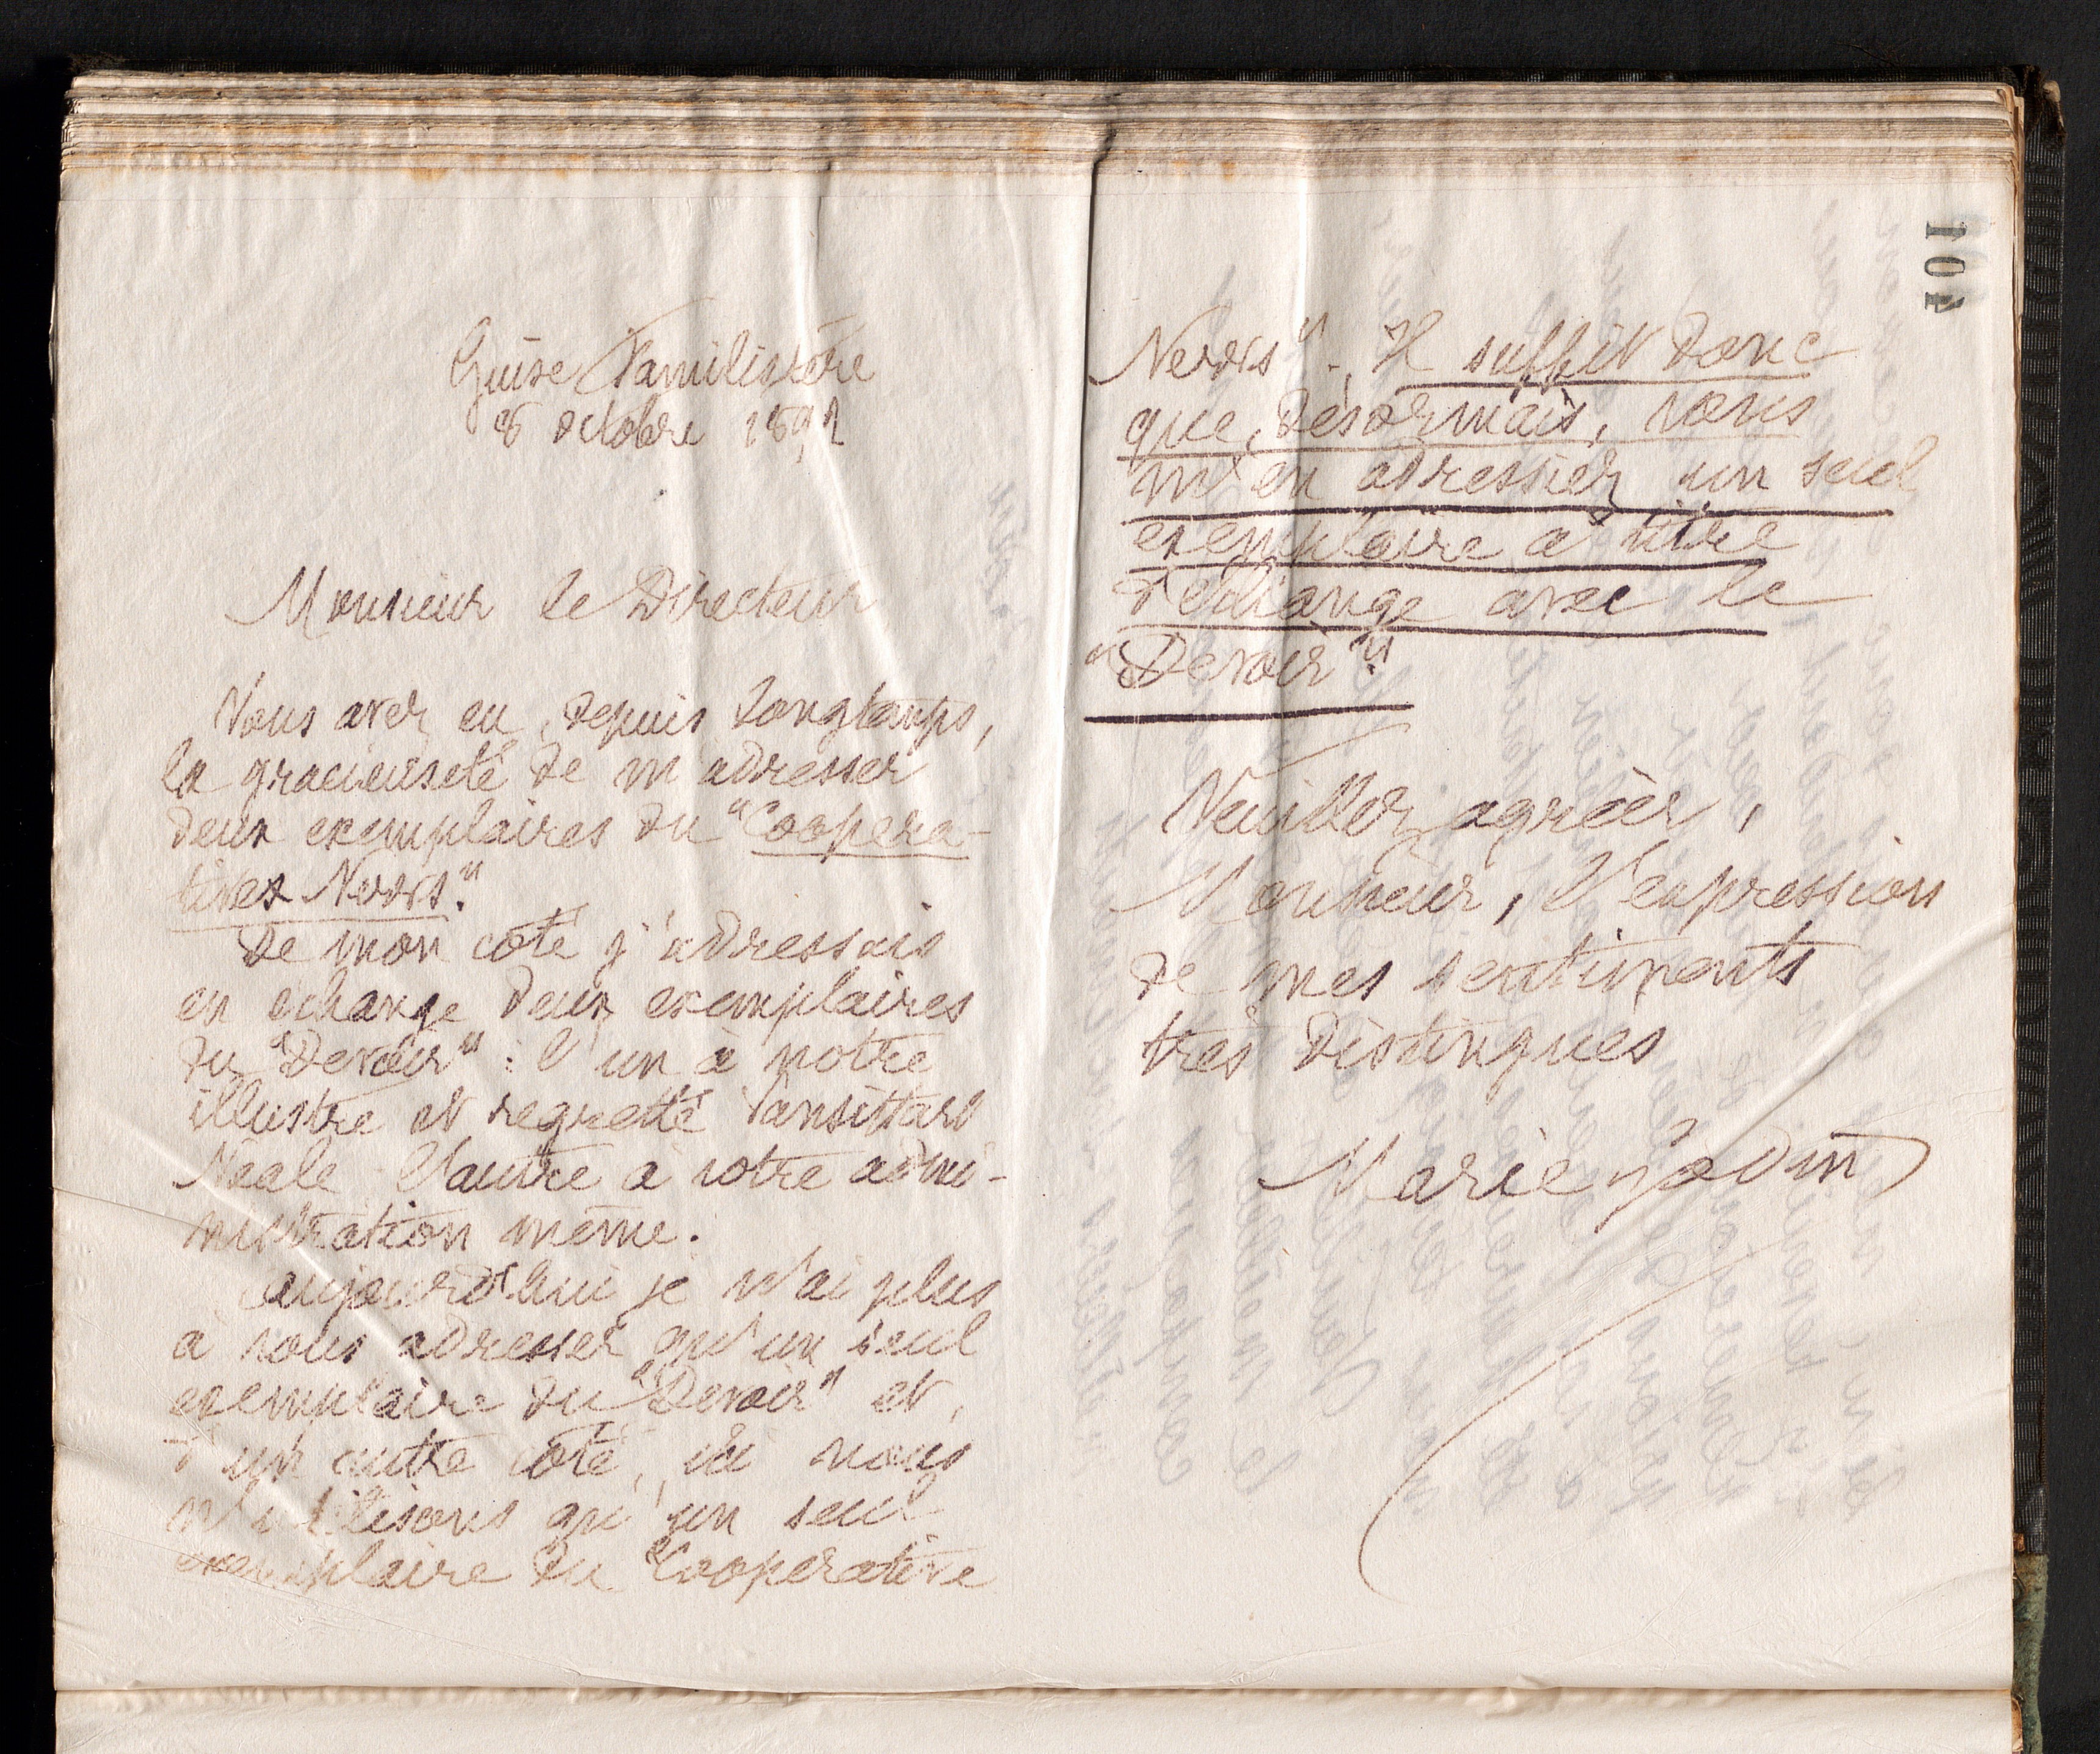 Guise Familistère
8 octobre 1892
Monsieur le Directeur
Vous avez eu, depuis longtemps,
la gracieuseté de m'adresser
deux exemplaires du "Coopera-
tives News".
De mon côté j'adressais
en échange deux exemplaires
du "Devoir" : l'un à notre
illustre et regretté Vansittart
Neale l'autre à votre admi-
nistration même.
Aujourd'hui je n'ai plus
à vous adresser qu'un seul
exemplaire du "Devoir" et,
d'un autre côté, ici nous
n'utilisons qu'un seul
exemplaire du "Cooperative
101
News". Il suffit donc
que, désormais, vous
m'en adressiez un seul
exemplaire à titre
d'échange avec le
"Devoir".
Veuillez agréer,
Monsieur, l'expression
de mes sentiments
très distingués
Marie Godin